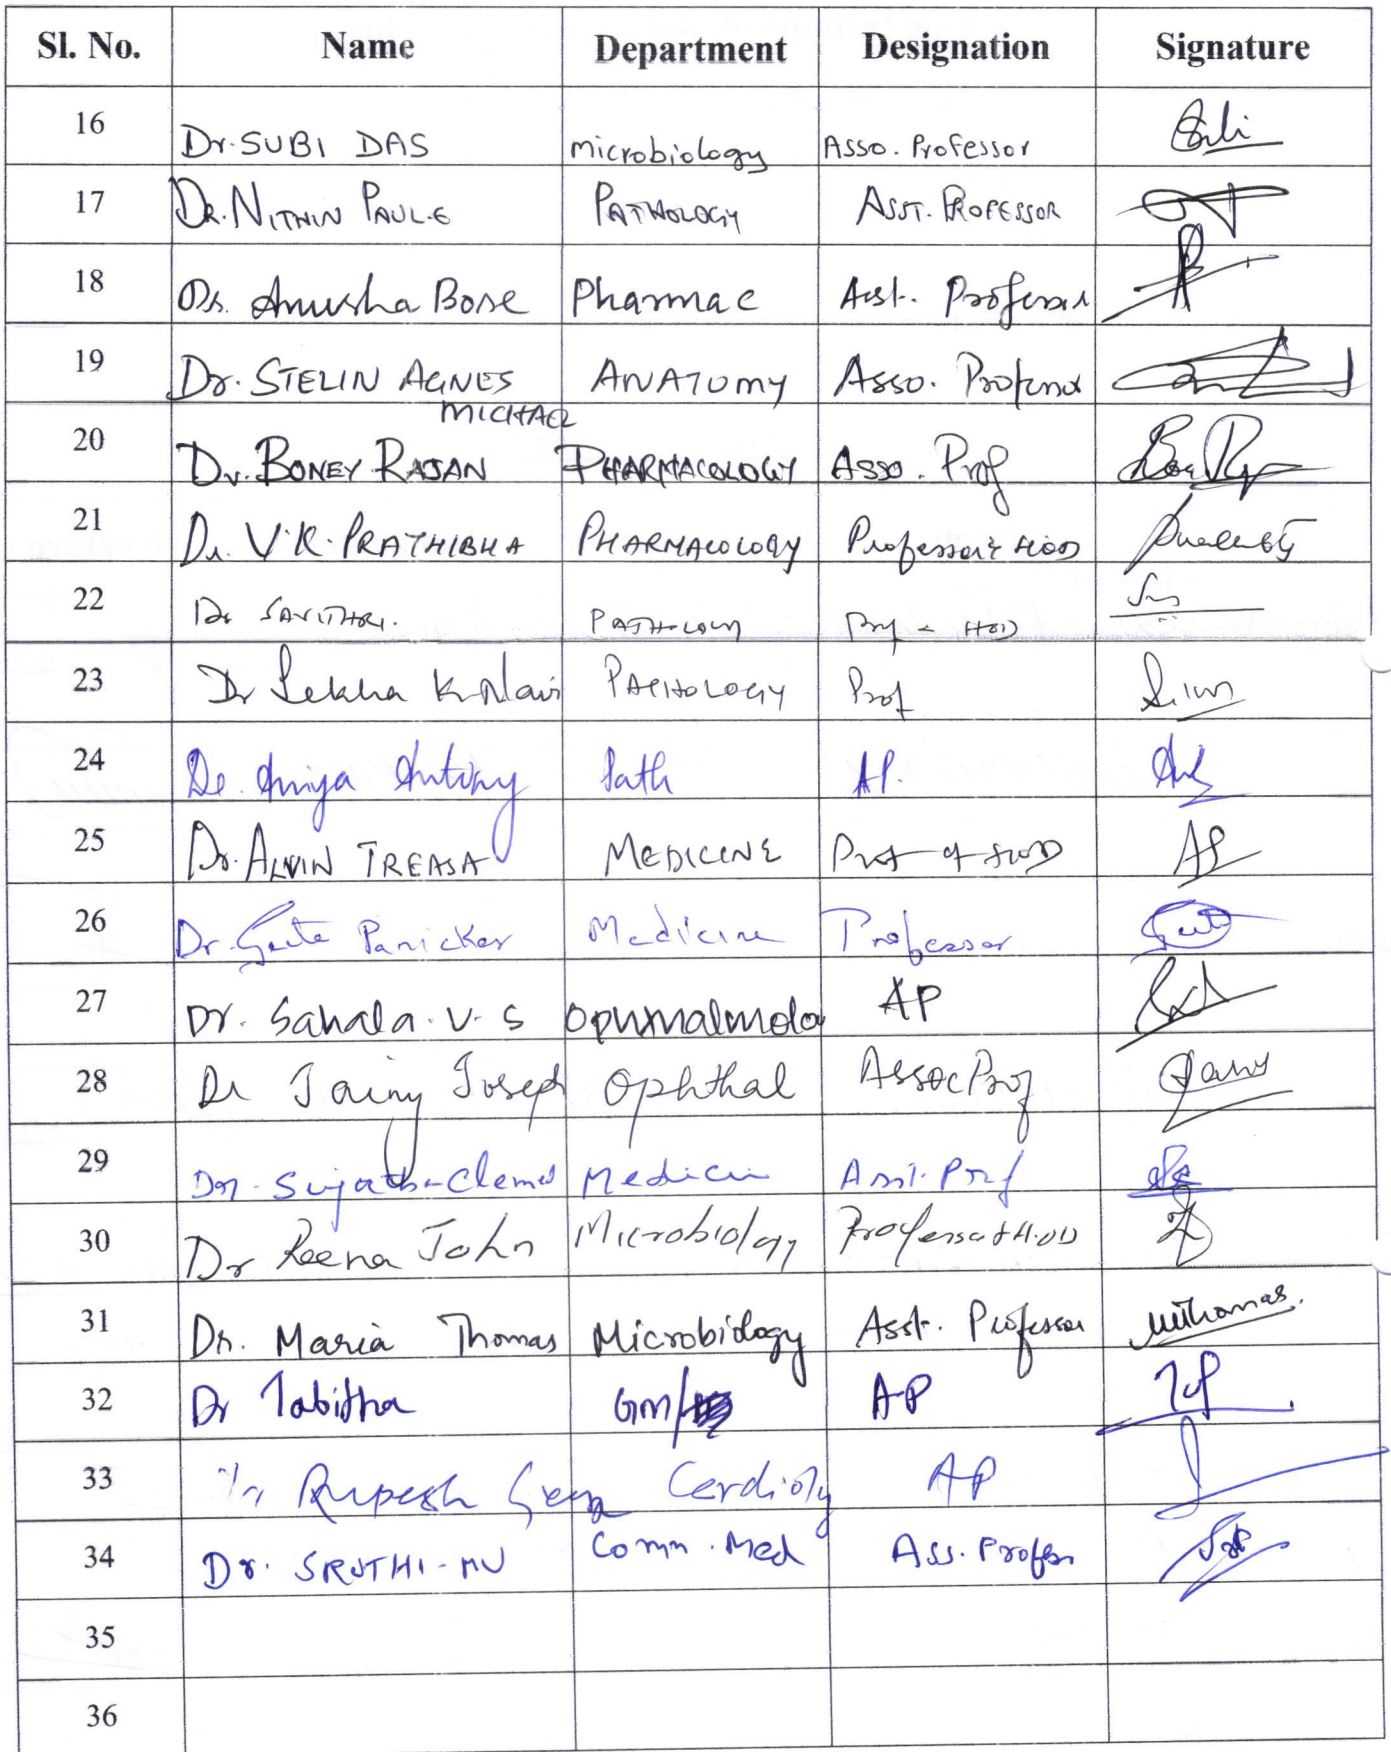 Sl. No. Name Department Designation Signature
16 Dr. SUBI DAS microbiology Asso. Professor
17 DR. NITHIN PAUL.G PATHOLOGY ASST. PROFESSOR
18 Dr. Anusha Bose Pharmac Asst. Professor
19 Dr. STELIN AGNES ANATOMY Asso. Professor
MICHAEL
20 Dr. BONEY RAJAN PHARMACOLOGY Asso. Prof
21 Dr. V.K. PRATHIBHA PHARMACOLOGY Professor & HOD
22 Dr SAVITHRI. PATHOLOGY Prof & HOD
23 Dr Lekha K. Nair PATHOLOGY Prof
24 Dr. Antony Path AP.
25 Dr. ALVIN TREASA MEDICINE Prof & HOD
26 Dr. Geeta Panicker Medicine Professor
27 Dr. Sahala. V. S AP
28 Dr Jainy Joseph Ophthal Assoc Prof
29 Dr. Sujatha Clemet Asst. Prof
30 Dr Reena John Microbiology Professor & H.OD
31 Dr. Maria Thomas Microbiology Asst. Professor mthomas.
32 Dr Tabitha GM/ AP
33 Dr Rupesh AP
34 Dr. SRUTHI. MV Comm. Med Ass. Profess
35
36